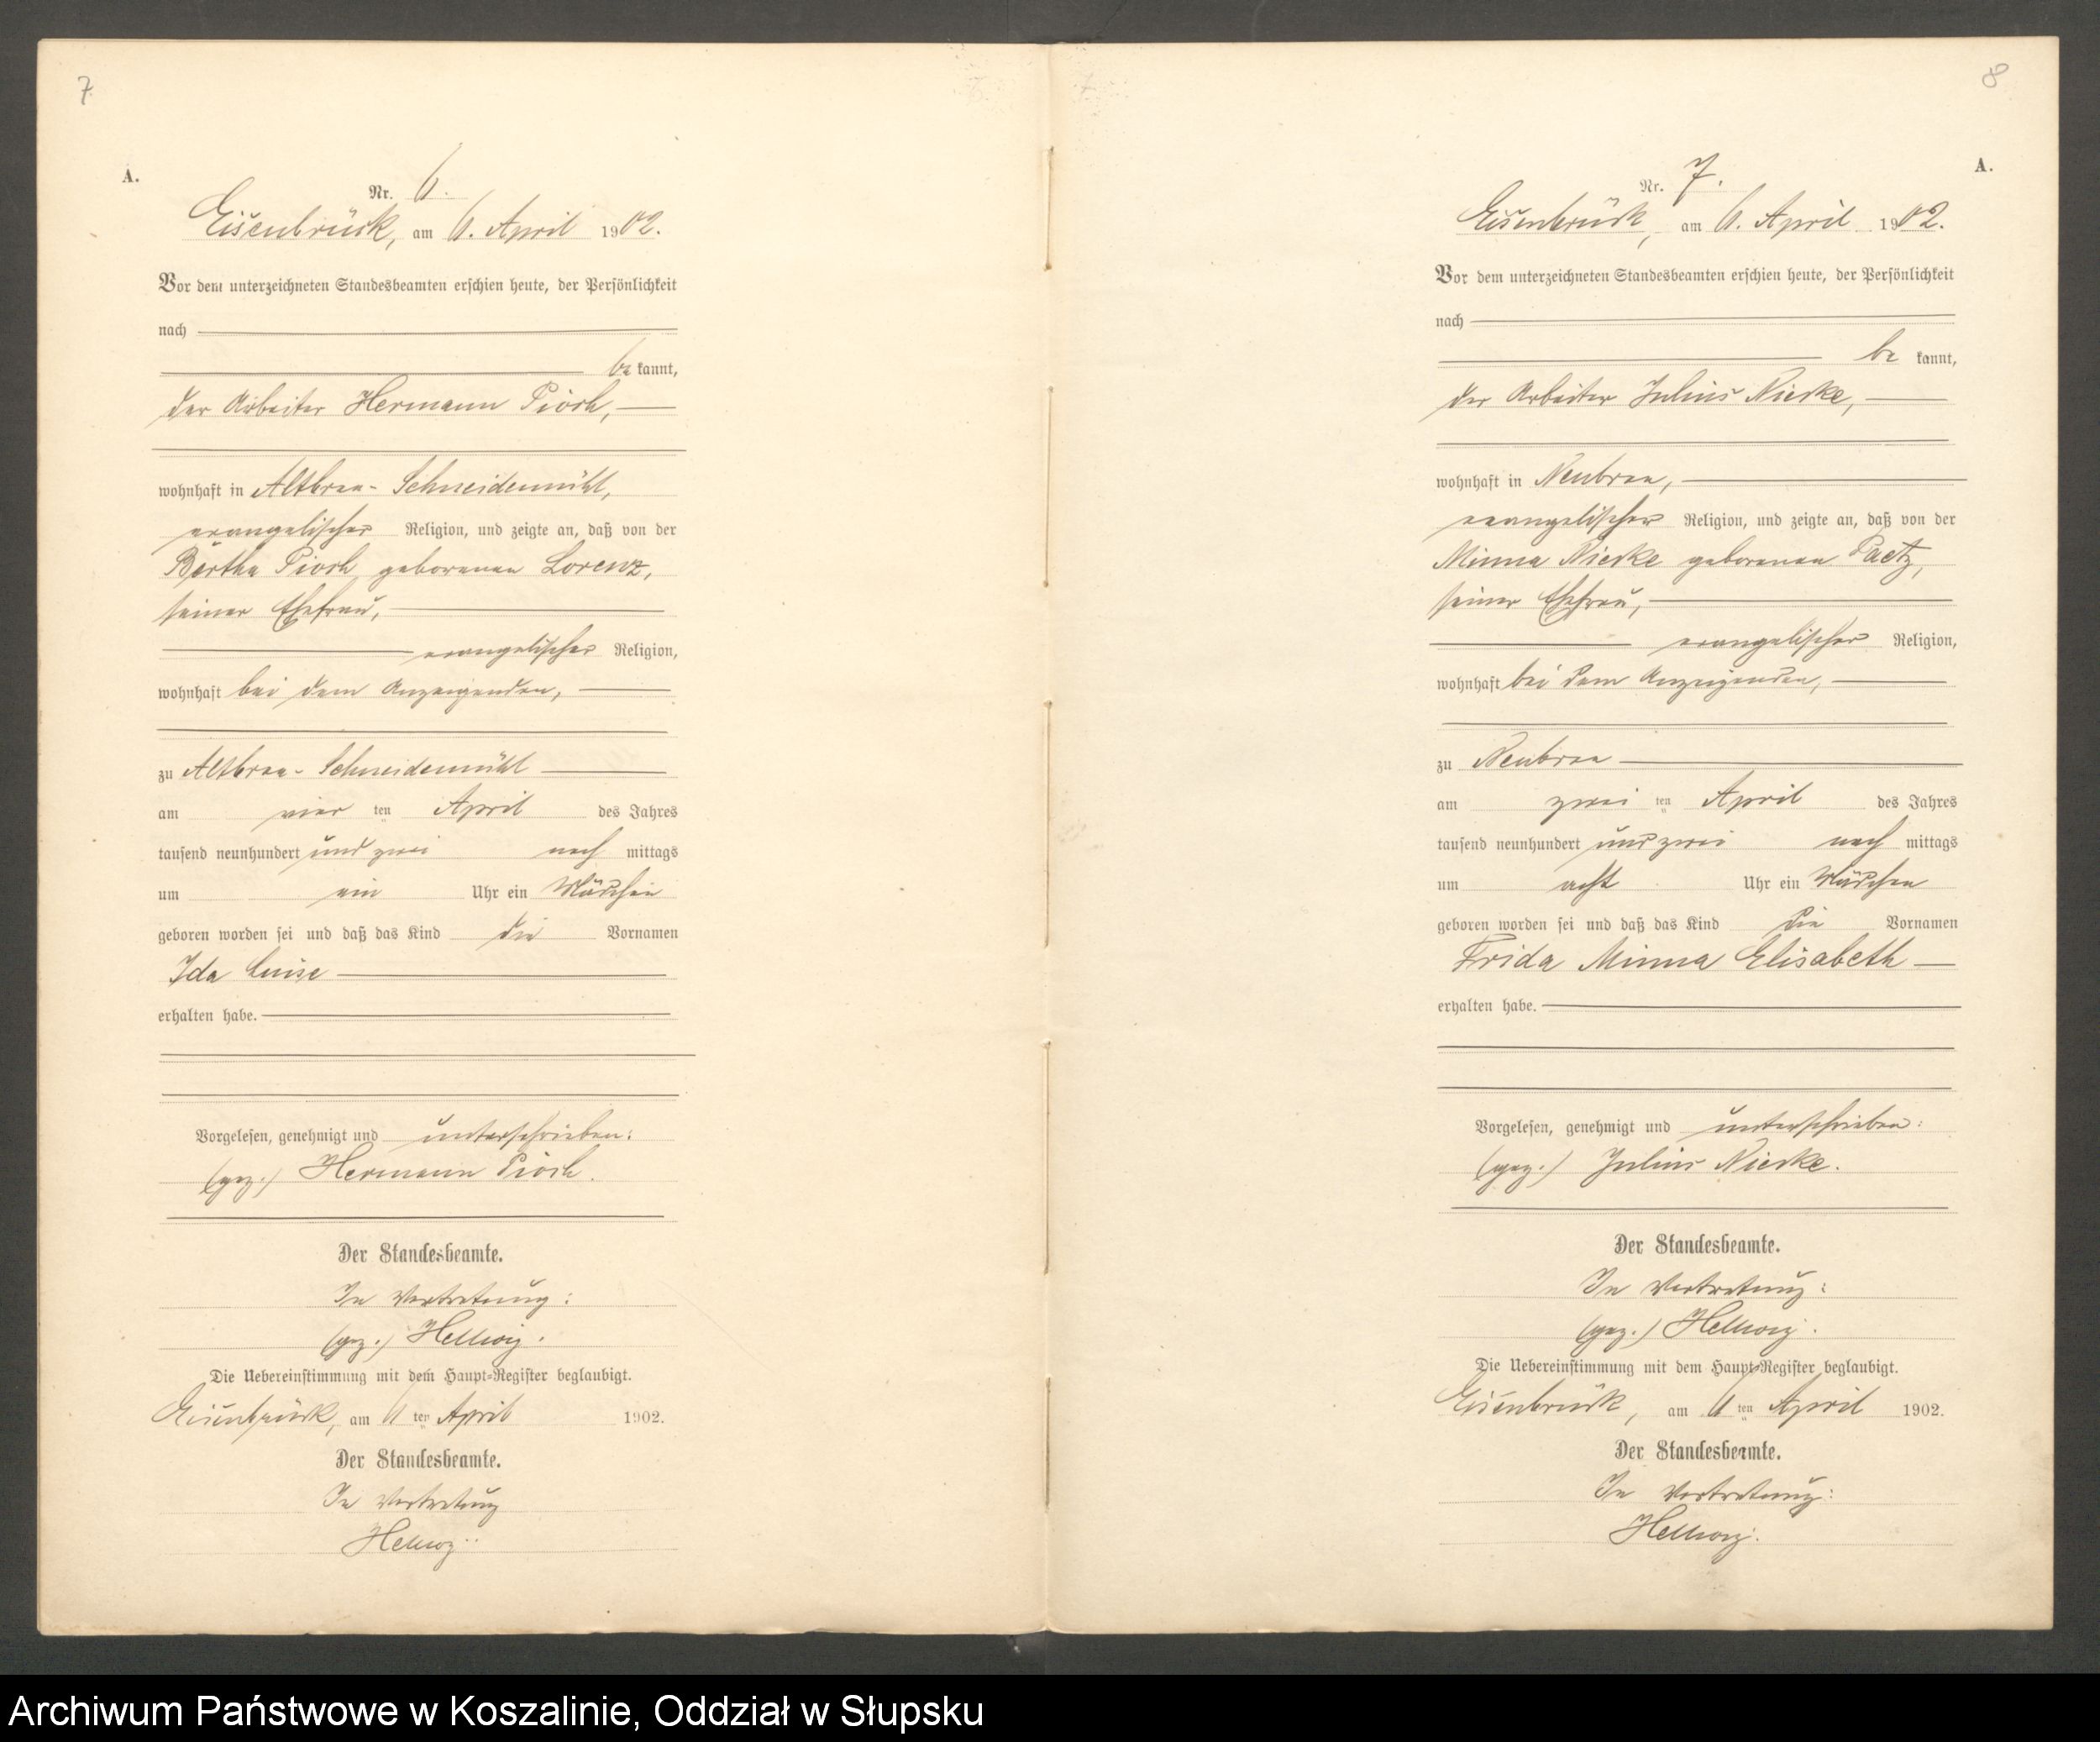 7
A.
Nr. 6.
Eisenbrück, am 6. April 1902.
Vor dem unterzeichneten Standesbeamten erschien heute, der Persönlichkeit
nach
be kannt,
der Arbeiter Hermann Piosch,
wohnhaft in Altbraa-Schneidemühl,
evangelischer Religion, und zeigte an, daß von der
Bertha Piosch geborenen Lorenz,
seiner Ehefrau,
evangelischer Religion,
wohnhaft bei dem Anzeigenden,
zu Altbraa-Schneidemühl
am vier ten April des Jahres
tausend neunhundert und zwei nach mittags
um ein Uhr ein Mädchen
geboren worden sei und daß das Kind die Vornamen
Ida Luise
erhalten habe.
Vorgelesen, genehmigt und unterschrieben:
(gez.) Hermann Piosch.
Der Standesbeamte.
In Vertretung:
(gez.) Hellwig.
Die Uebereinstimmung mit dem Haupt-Register beglaubigt.
Eisenbrück, am 6 ten April 1902.
Der Standesbeamte.
In Vertretung
Hellwig.
8
A.
Nr. 7.
Eisenbrück, am 6. April 1902.
Vor dem unterzeichneten Standesbeamten erschien heute, der Persönlichkeit
nach
be kannt,
der Arbeiter Julius Nieske,
wohnhaft in Neubraa,
evangelischer Religion, und zeigte an, daß von der
Minna Nieske geborenen Paetz,
seiner Ehefrau,
evangelischer Religion,
wohnhaft bei dem Anzeigenden,
zu Neubraa
am zwei ten April des Jahres
tausend neunhundert und zwei nach mittags
um acht Uhr ein Mädchen
geboren worden sei und daß das Kind die Vornamen
Frida Minna Elisabeth
erhalten habe.
Vorgelesen, genehmigt und unterschrieben:
(gez.) Julius Nieske.
Der Standesbeamte.
In Vertretung:
(gez.) Hellwig.
Die Uebereinstimmung mit dem Haupt-Register beglaubigt.
Eisenbrück, am 6 ten April 1902.
Der Standesbeamte.
In Vertretung:
Hellwig.
Archiwum Państwowe w Koszalinie, Oddział w Słupsku